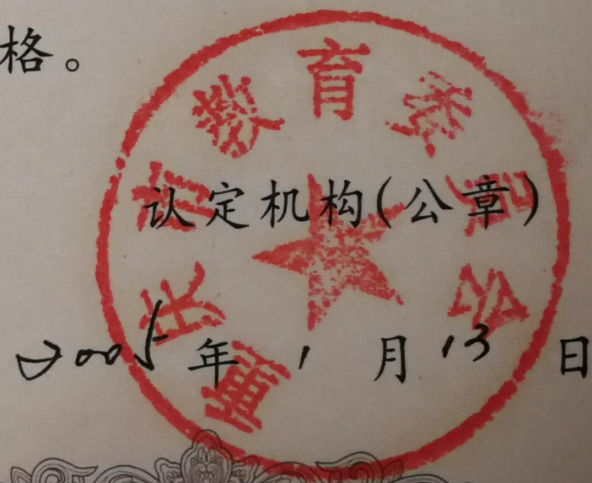 格。
重庆市教育委员会
认定机构(公章)
2005年1月13日